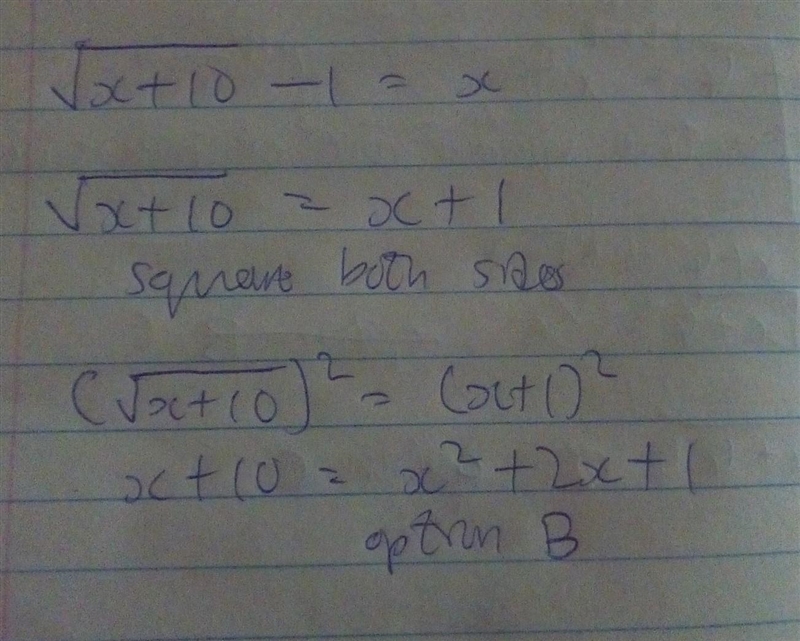 √x+10 - 1 = x
√x+10 = x + 1
square both sides
(√x+10)² = (x+1)²
x + 10 = x² + 2x + 1
option B